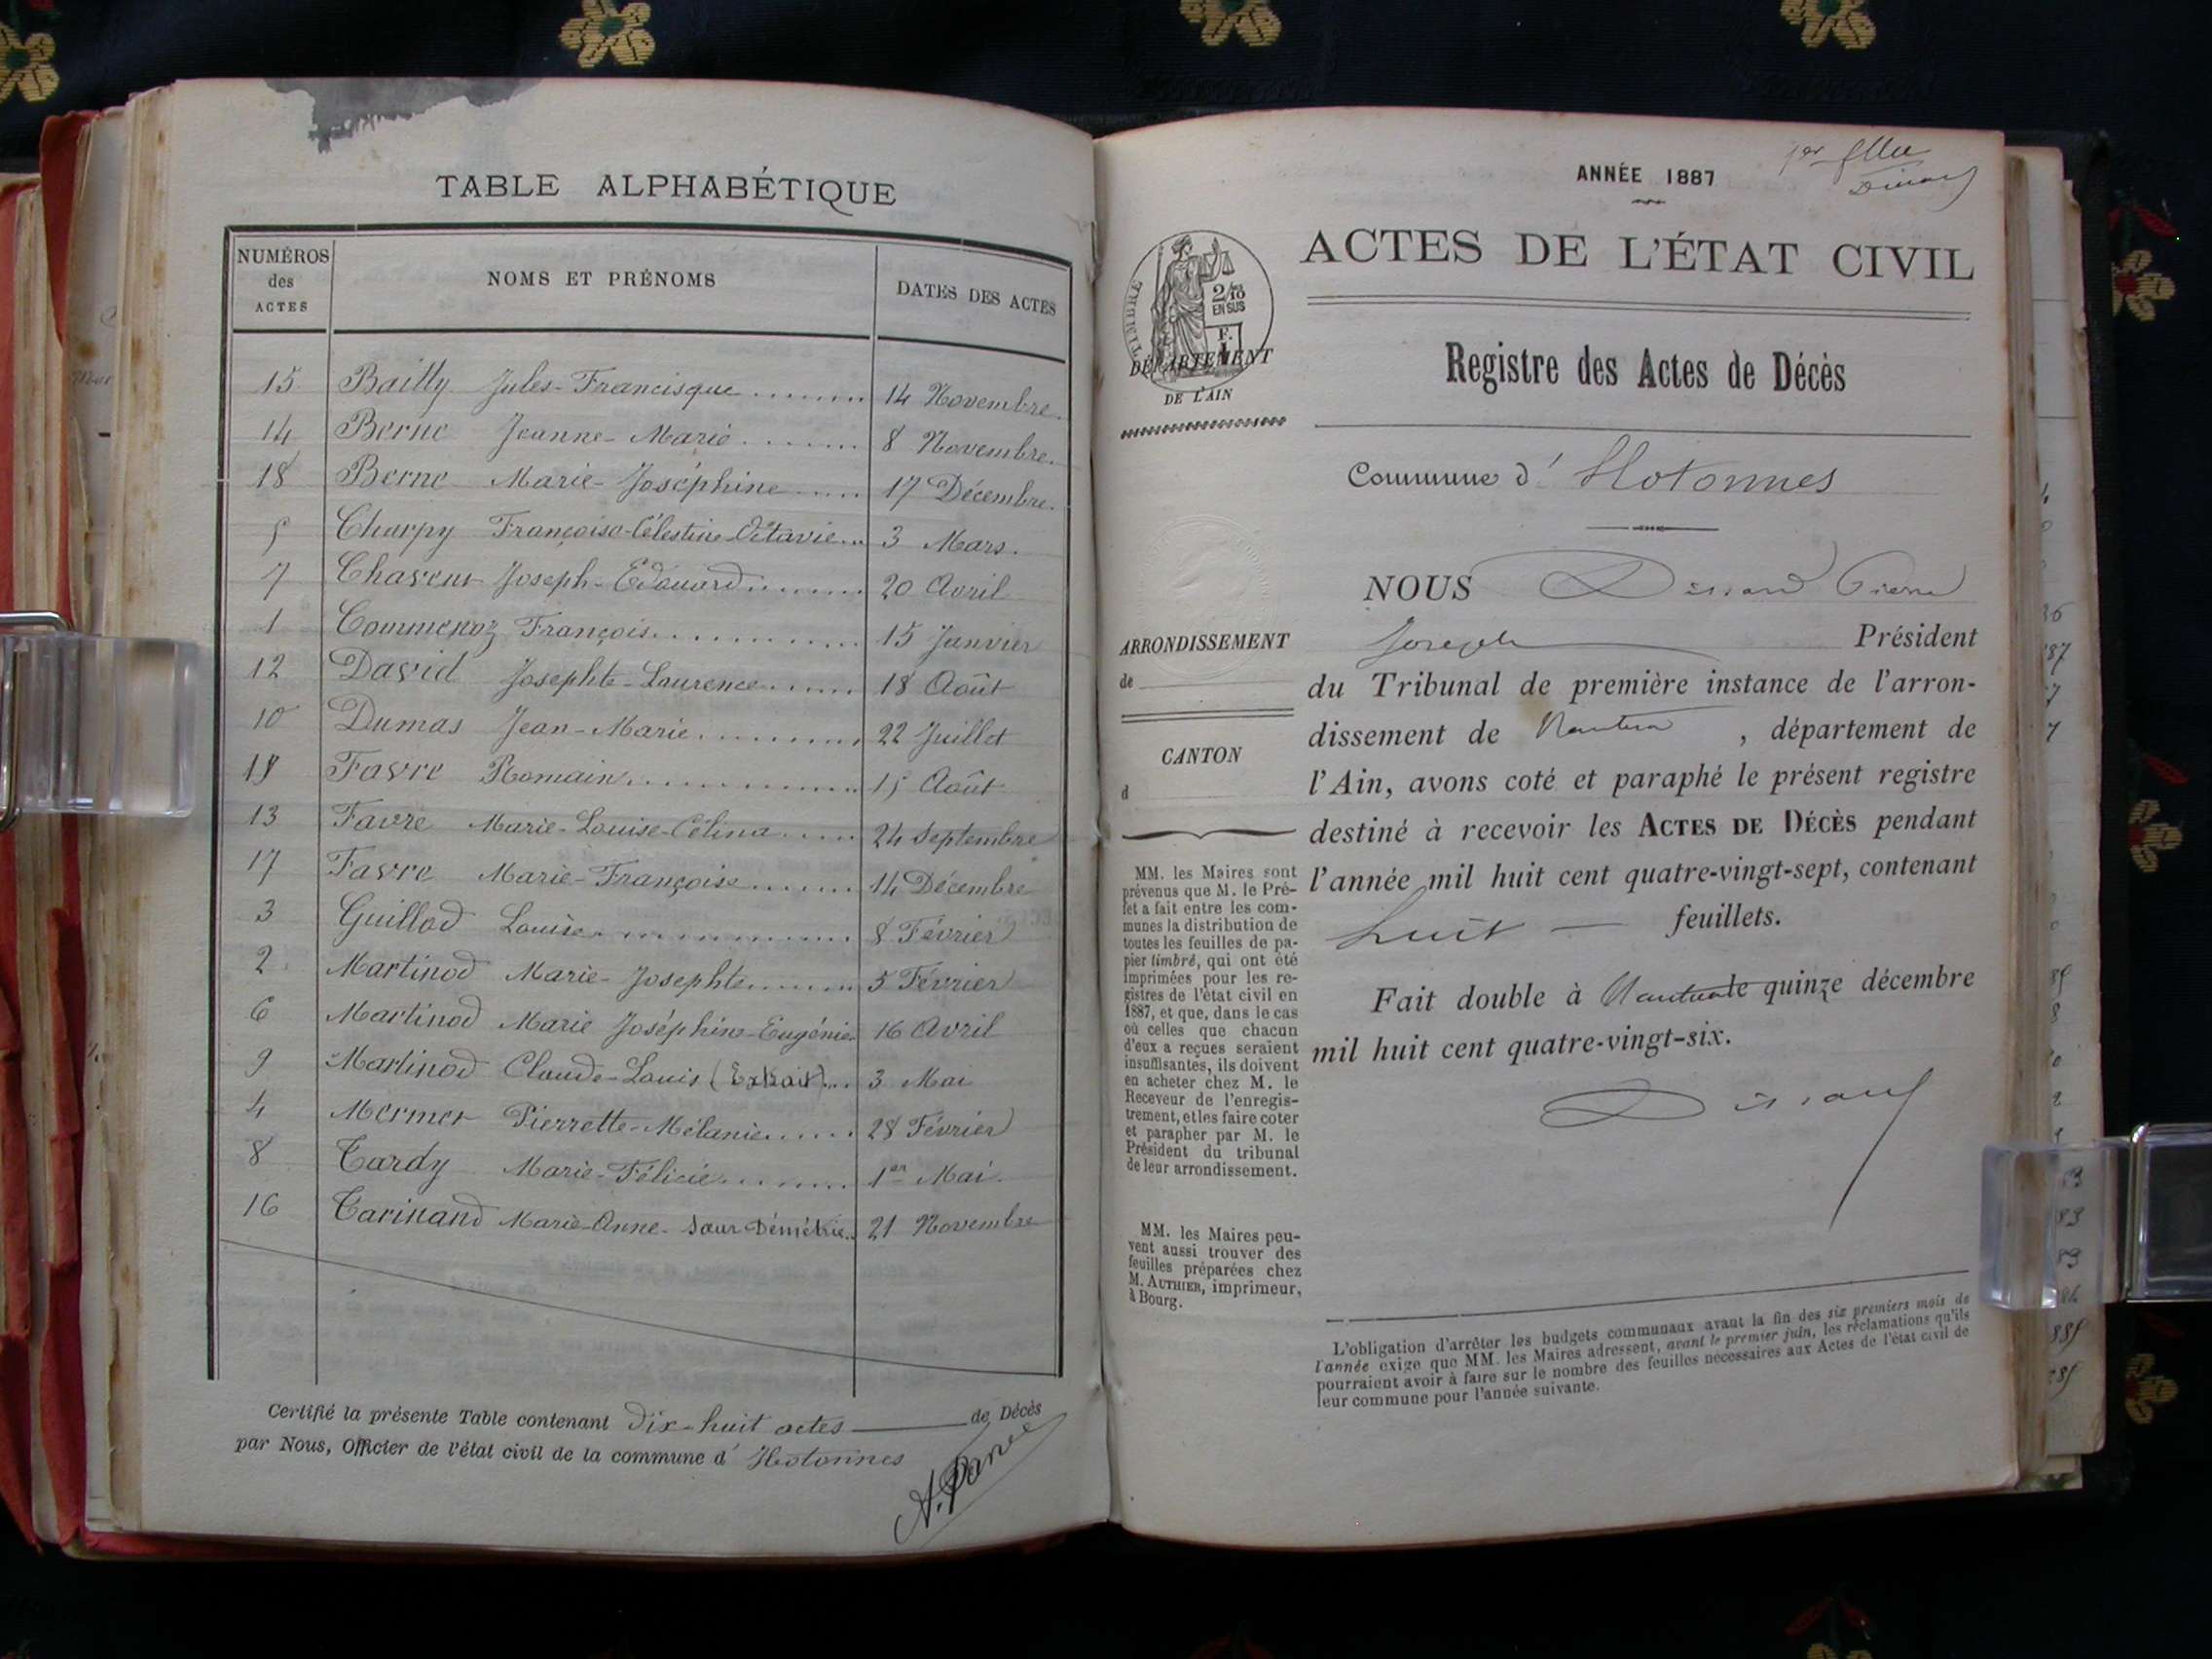 TABLE ALPHABÉTIQUE
NUMÉROS des ACTES
NOMS ET PRÉNOMS
DATES DES ACTES
15 Bailly Jules-Francisque 14 Novembre.
14 Berne Jeanne-Marie 8 Novembre.
18 Berne Marie-Joséphine 17 Décembre.
5 Charpy Françoise-Célestine-Octavie 3 Mars.
7 Chavent Joseph-Edouard 20 Avril
1 Commenoz François 15 Janvier
12 David Josephte-Laurence 18 Août
10 Dumas Jean-Marie 22 Juillet
Favre Romain 15 Août
13 Favre Marie-Louise-Célina 24 Septembre
17 Favre Marie-Françoise 14 Décembre
3 Guillod Louise 8 Février
2 Martinod Marie-Josephte 5 Février
6 Martinod Marie Joséphine-Eugénie 16 Avril
9 Martinod Claude-Louis (Extrait) 3 Mai
4 Mermet Pierrette-Mélanie 28 Février
8 Tardy Marie-Félicie 1er Mai.
16 Tarinand Marie-Anne- Sœur Démétrie 21 Novembre
Certifié la présente Table contenant dix-huit actes de Décès
par Nous, Officier de l'état civil de la commune d' Hotonnes
ANNÉE 1887
1er
ACTES DE L'ÉTAT CIVIL
TIMBRE
2/10
EN SUS
F.
1
DÉPARTEMENT
DE L'AIN
Registre des Actes de Décès
Commune d' Hotonnes
ARRONDISSEMENT
de
CANTON
d
NOUS Pierre
Joseph Président
du Tribunal de première instance de l'arron-
dissement de Nantua , département de
l'Ain, avons coté et paraphé le présent registre
destiné à recevoir les ACTES DE DÉCÈS pendant
l'année mil huit cent quatre-vingt-sept, contenant
huit feuillets.
Fait double à Nantua le quinze décembre
mil huit cent quatre-vingt-six.
MM. les Maires sont
prévenus que M. le Pré-
fet a fait entre les com-
munes la distribution de
toutes les feuilles de pa-
pier timbré, qui ont été
imprimées pour les re-
gistres de l'état civil en
1887, et que, dans le cas
où celles que chacun
d'eux a reçues seraient
insuffisantes, ils doivent
en acheter chez M. le
Receveur de l'enregis-
trement, et les faire coter
et parapher par M. le
Président du tribunal
de leur arrondissement.
MM. les Maires peu-
vent aussi trouver des
feuilles préparées chez
M. AUTHIER, imprimeur,
à Bourg.
L'obligation d'arrêter les budgets communaux avant la fin des six premiers mois de
l'année exige que MM. les Maires adressent, avant le premier juin, les réclamations qu'ils
pourraient avoir à faire sur le nombre des feuilles nécessaires aux Actes de l'état civil de
leur commune pour l'année suivante.